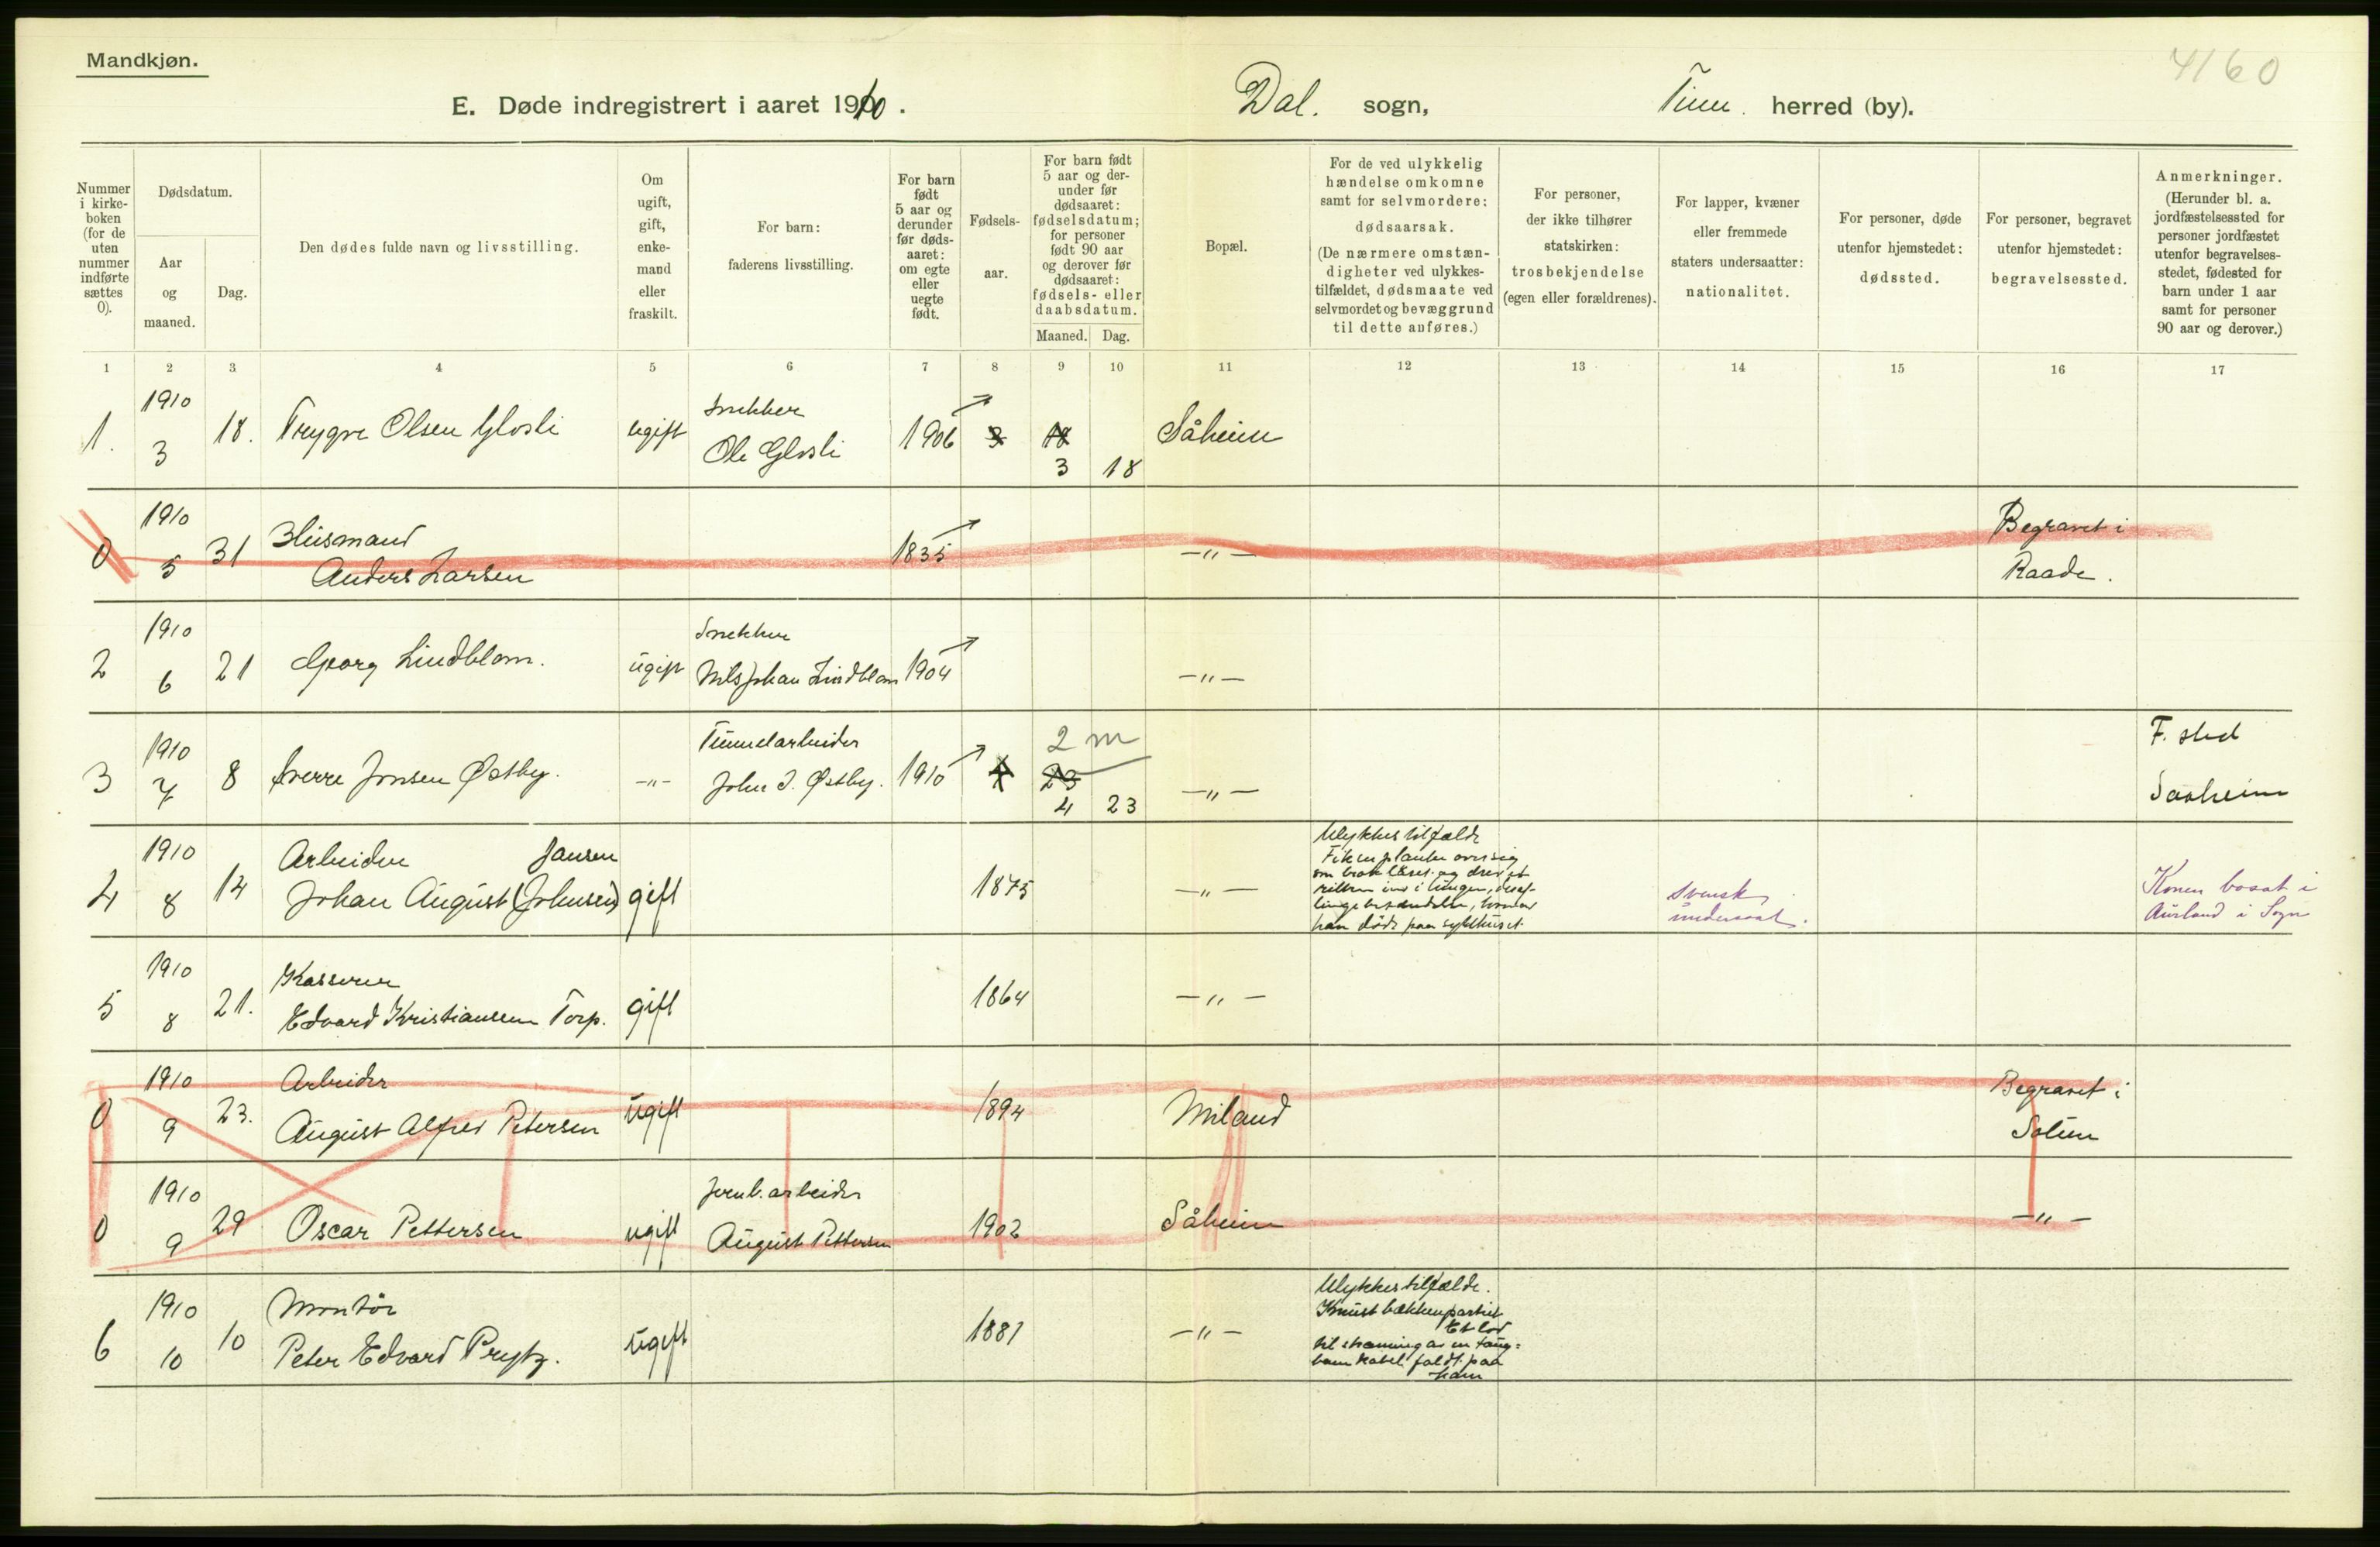 Mandkjøn.
4160
E. Døde indregistrert i aaret 1910.
Dal. sogn,
Tinn. herred (by).
Nummer i kirke-boken (for de uten nummer indførte sættes 0).
Dødsdatum.
Aar og maaned.
Dag.
Den dødes fulde navn og livsstilling.
Om ugift, gift, enke-mand eller fraskilt.
For barn: faderens livsstilling.
For barn født 5 aar og derunder før døds-aaret: om egte eller uegte født.
Fødsels-aar.
For barn født 5 aar og der-under før dødsaaret: fødselsdatum; for personer født 90 aar og derover før dødsaaret: fødsels- eller daabsdatum.
Maaned. Dag.
Bopæl.
For de ved ulykkelig hændelse omkomne samt for selvmordere: dødsaarsak. (De nærmere omstæn-digheter ved ulykkes-tilfældet, dødsmaate ved selvmordet og bevæggrund til dette anføres.)
For personer, der ikke tilhører statskirken: trosbekjendelse (egen eller forældrenes).
For lapper, kvæner eller fremmede staters undersaatter: nationalitet.
For personer, døde utenfor hjemstedet: dødssted.
For personer, begravet utenfor hjemstedet: begravelsessted.
Anmerkninger. (Herunder bl. a. jordfæstelsessted for personer jordfæstet utenfor begravelses-stedet, fødested for barn under 1 aar samt for personer 90 aar og derover.)
1 2 3 4 5 6 7 8 9 10 11 12 13 14 15 16 17
1. 1910 3 18. Trygve Olsen Glosli ugift Snekker Ole Glosli 1906 3 18 3 18 Såheim
0 1910 5 31 Husmand Anders Larsen 1835 -"- Begravet i Raade.
2 1910 6 21 Georg Lindblom. ugift Snekker Nils Johan Lindblom 1904 -"-
3 1910 7 8 Sverre Jonsen Østby. -"- Tunnelarbeider John J. Østby. 1910 4 23 2 m 4 23 -"- F. sted Saaheim
4 1910 8 14 Arbeider Johan August (Johnsen) Jansen gift 1875 -"- Ulykkestilfælde Fik en planke over sig som brak laaret og drev et ribben ind i lungen, hvoraf han døde paa sykehuset. svensk undersaat. Konen bosat i Aurland i Sogn
5 1910 8 21. Kasserer Edvard Kristiansen Torp. gift 1864 -"-
0 1910 9 23. Arbeider August Alfred Petersen ugift 1894 Miland Begravet i Solum
0 1910 9 29 Oscar Pettersen ugift Jernb. arbeider August Pettersen 1902 Såheim -"-
6 1910 10 10 Montør Peter Edvard Prytz. ugift 1881 -"- Ulykkestilfælde. Knust bækkenpartiet Et lod til stramning av en taug-bane kabel faldt paa ham